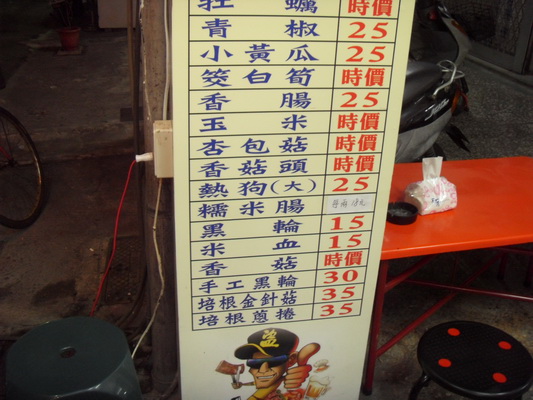 牡蠣 時價
青椒 25
小黃瓜 25
筊白筍 時價
香腸 25
玉米 時價
杏包菇 時價
香菇頭 時價
熱狗(大) 25
糯米腸
黑輪 15
米血 15
香菇 時價
手工黑輪 30
培根金針菇 35
培根蔥捲 35